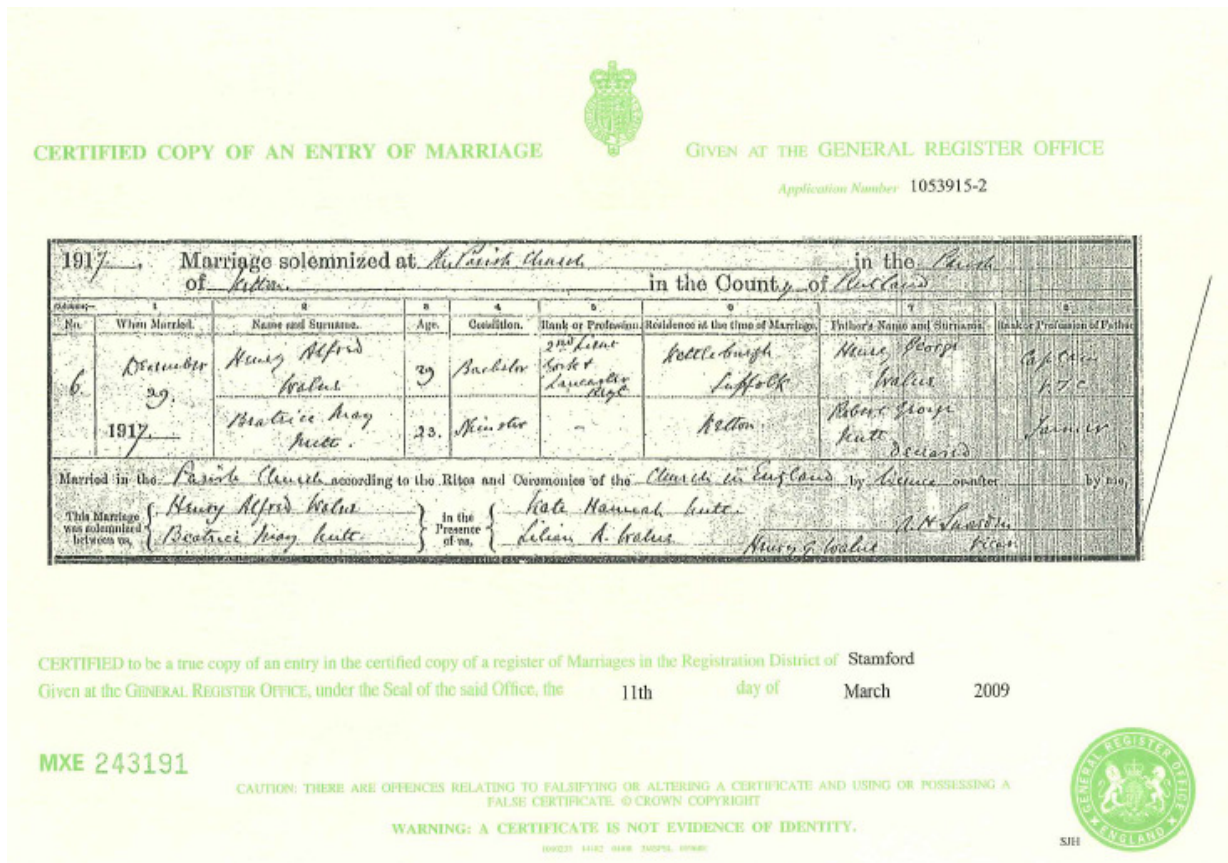 CERTIFIED COPY OF AN ENTRY OF MARRIAGE
GIVEN AT THE GENERAL REGISTER OFFICE
Application Number 1053915-2
1917. Marriage solemnized at the Parish Church in the Parish
of Ketton in the County of Rutland
Columns:— 1 2 3 4 5 6 7 8
No. When Married. Name and Surname. Age. Condition. Rank or Profession. Residence at the time of Marriage. Father's Name and Surname. Rank or Profession of Father
6. December 29. 1917. Henry Alfred 29 Bachelor 2nd Lieut York & Lancaster Regt Kettleburgh Suffolk Henry George Captain V.T.C.
Beatrice May Nutt. 23. Spinster - Ketton. Robert George Nutt deceased Farmer
Married in the Parish Church according to the Rites and Ceremonies of the Church in England by licence or after by me,
This Marriage was solemnized between us, Henry Alfred
Beatrice May Nutt.
in the Presence of us, Kate Hannah Nutt.
Lilian A.
Henry G. Vicar
CERTIFIED to be a true copy of an entry in the certified copy of a register of Marriages in the Registration District of Stamford
Given at the GENERAL REGISTER OFFICE, under the Seal of the said Office, the 11th day of March 2009
MXE 243191
CAUTION: THERE ARE OFFENCES RELATING TO FALSIFYING OR ALTERING A CERTIFICATE AND USING OR POSSESSING A
FALSE CERTIFICATE. © CROWN COPYRIGHT
WARNING: A CERTIFICATE IS NOT EVIDENCE OF IDENTITY.
GENERAL REGISTER OFFICE
ENGLAND
SJH